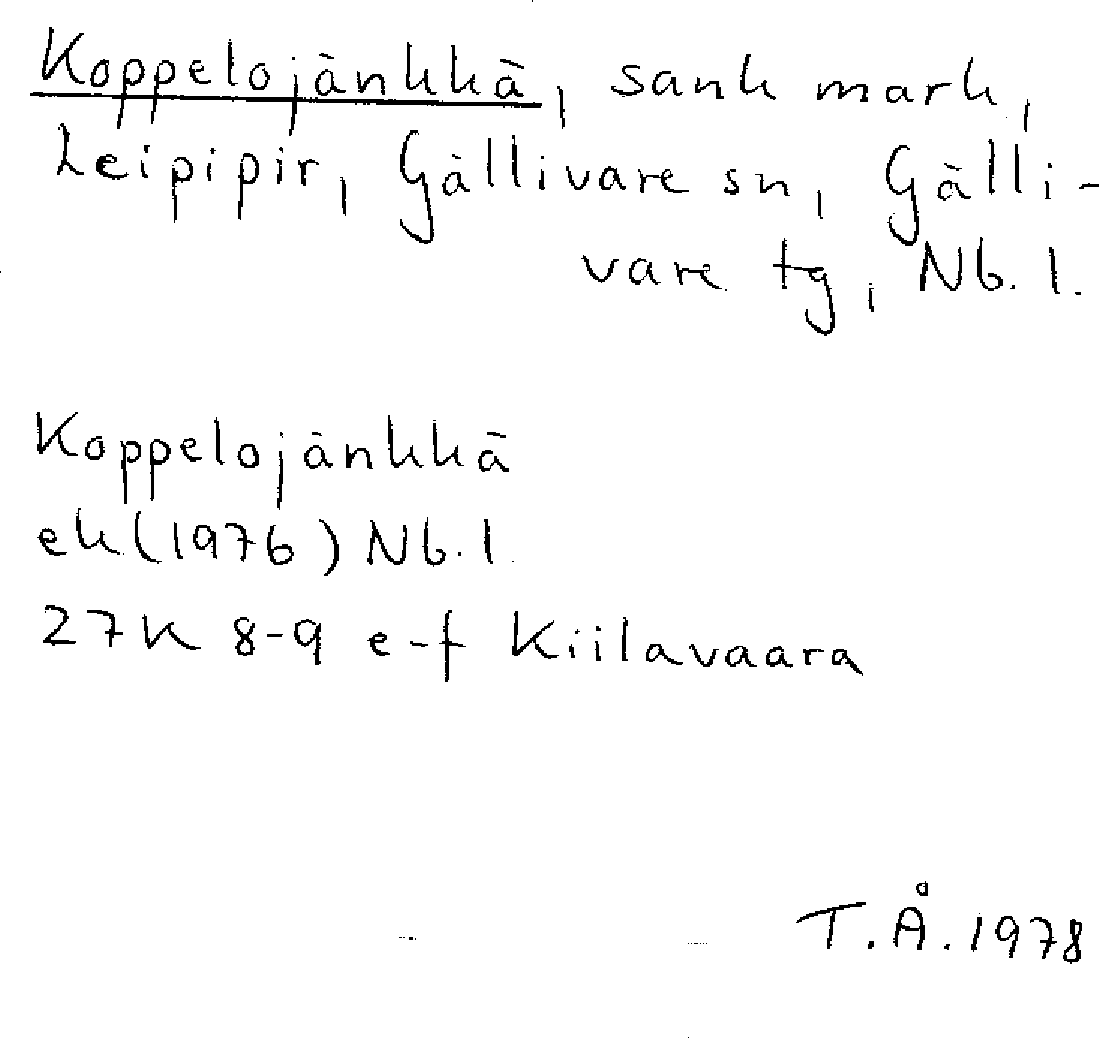 Koppelojänkkä, sank mark,
Leipipir, Gällivare sn, Gälli-
vare tg, Nb. l.
Koppelojänkkä
ek (1976) Nb. l.
27K 8-9 e-f Kiilavaara
T.Å. 1978